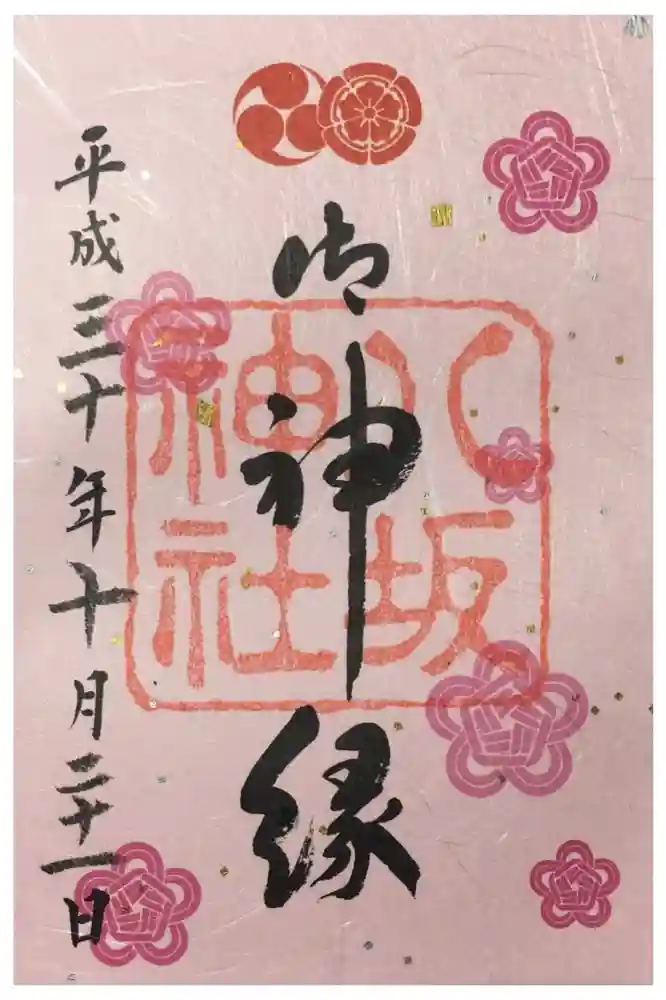 御神縁
八坂
神社
平成三十年十月二十一日